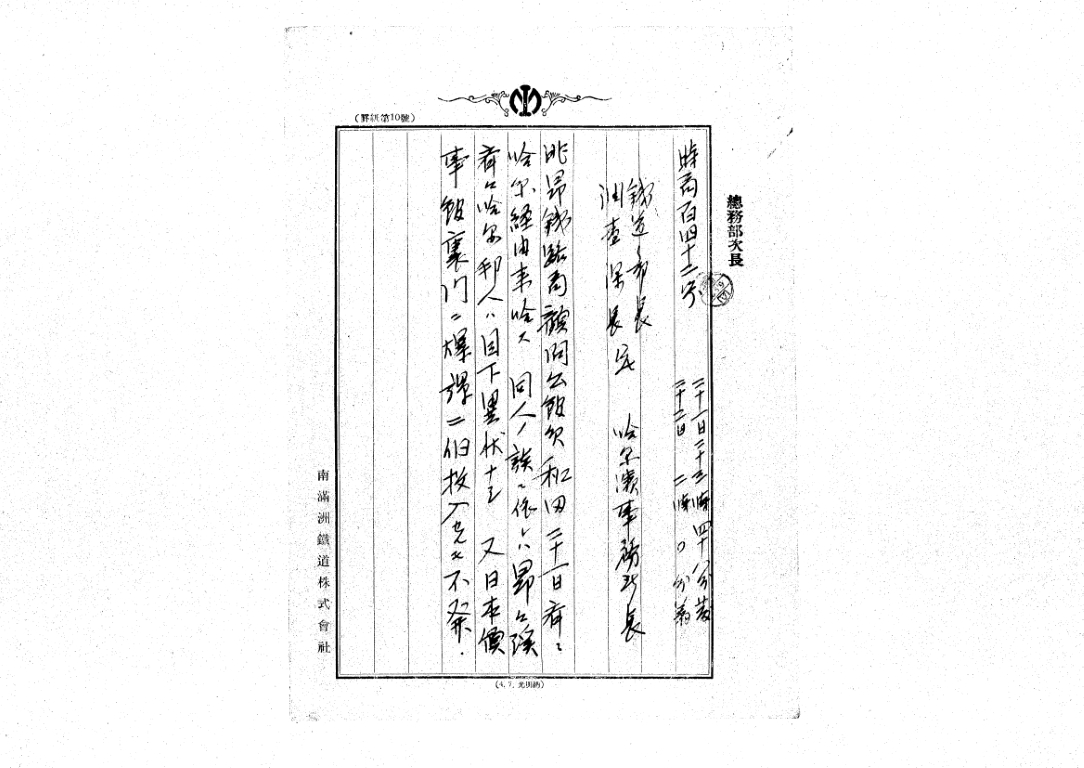 (罫紙第10號)
總務部次長
時商百四十二号
二十一日二十三時四十八分発
二十二日 二時〇分着
鉄道部長
調査課長宛 哈尔濱事務所長
洮昂鉄路局顧問公館員和田二十一日斉々
哈尔経由来哈ス 同人ノ談ニ依レハ昂々渓
斉々哈尔邦人ハ目下異状ナシ 又日本領
事館裏門ニ爆弾二個投入セルモ不発.
南滿洲鐵道株式會社